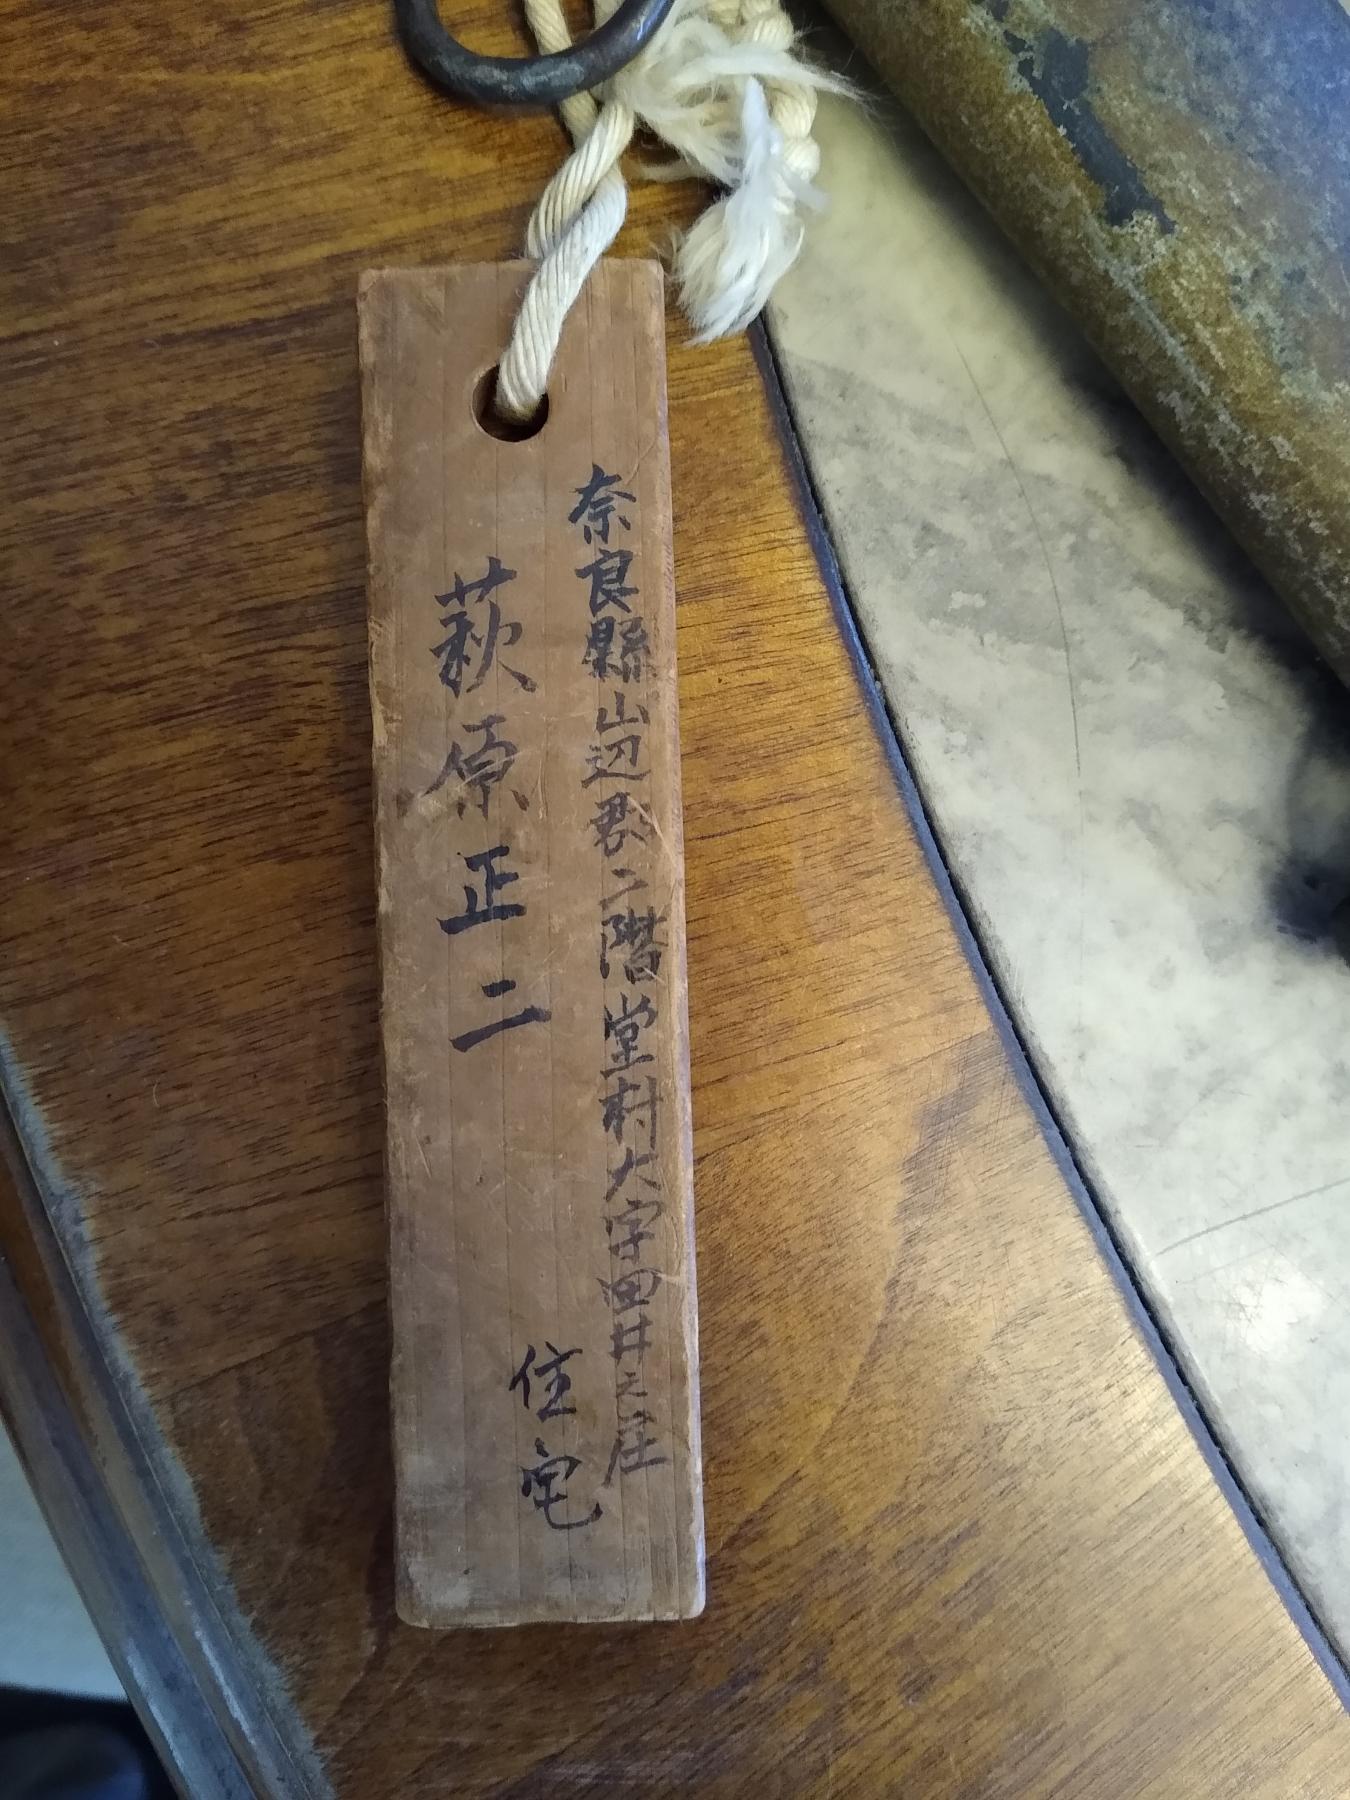 奈良縣山辺郡二階堂村大字田井之庄
萩原正二
住宅